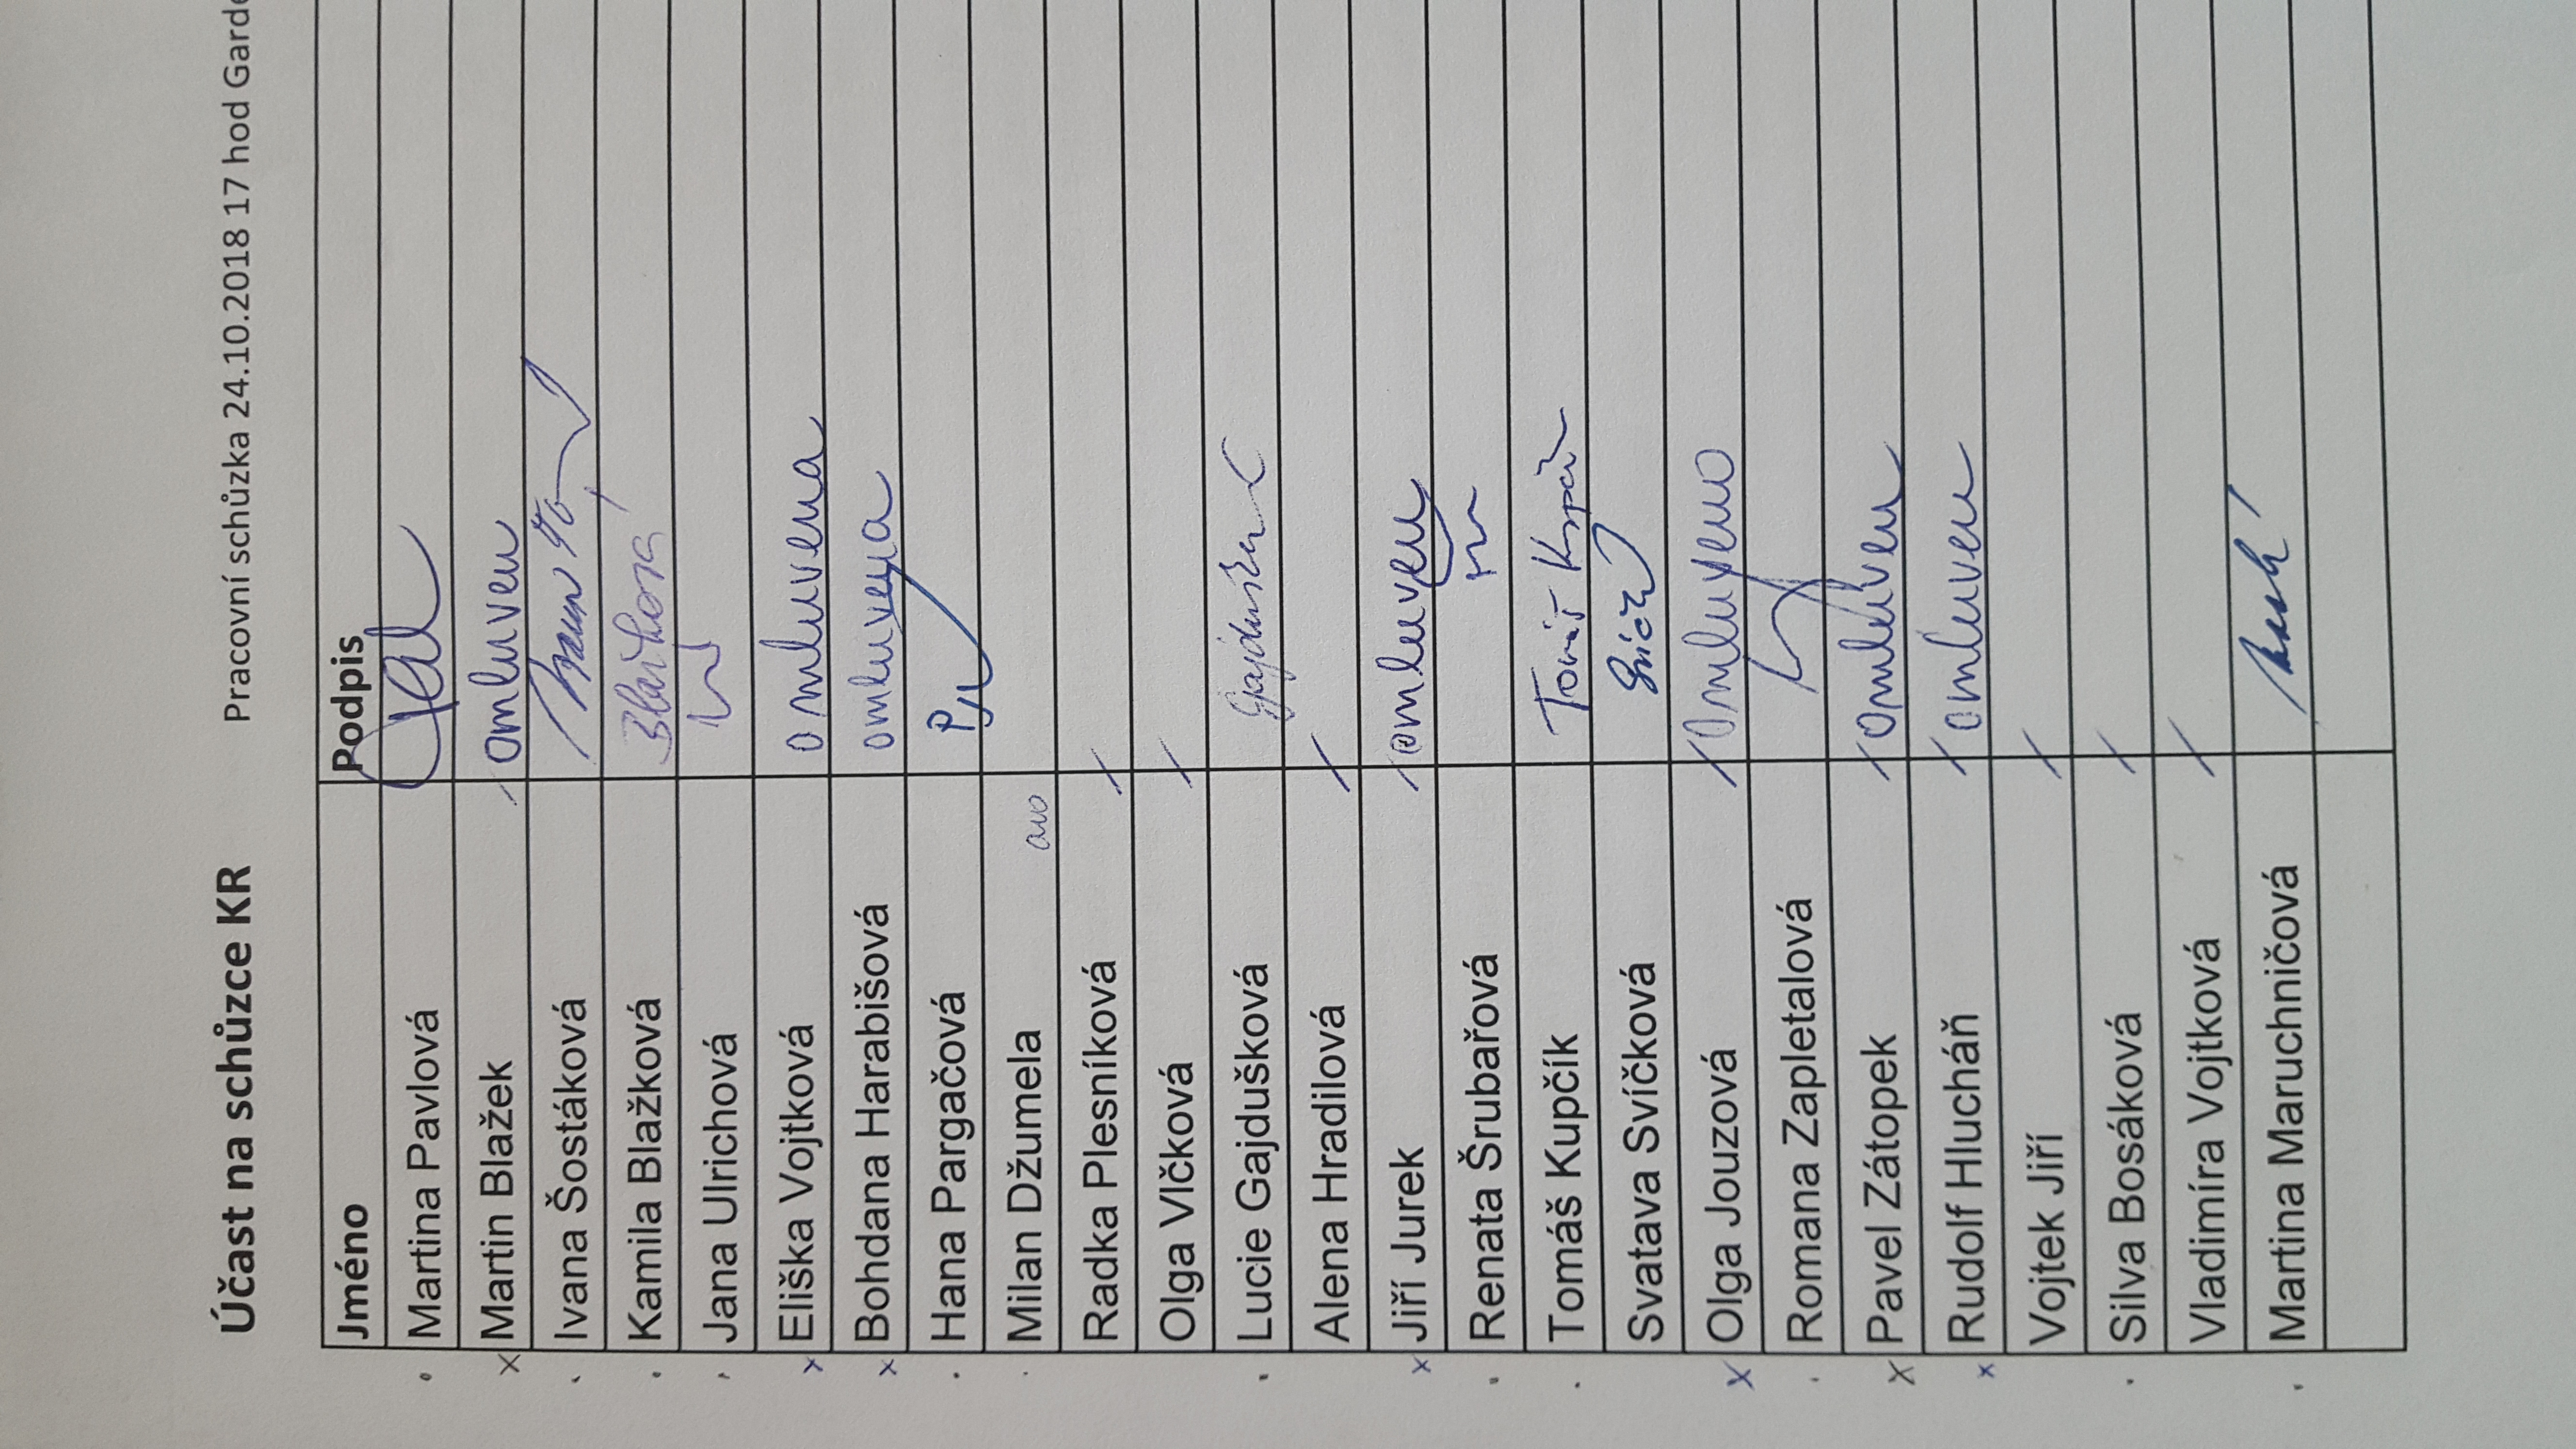 Účast na schůzce KR Pracovní schůzka 24.10.2018 17 hod Garde
Jméno Podpis
Martina Pavlová
x Martin Blažek omluven
Ivana Šostáková
Kamila Blažková Blažková
Jana Ulrichová
x Eliška Vojtková omluvena
x Bohdana Harabišová omluvena
Hana Pargačová
Milan Džumela ano
Radka Plesníková /
Olga Vlčková /
Lucie Gajdušková
Alena Hradilová /
x Jiří Jurek / omluven
Renata Šrubařová
Tomáš Kupčík Tomáš Kupčík
Svatava Svíčková
x Olga Jouzová / Omluveno
Romana Zapletalová
x Pavel Zátopek / omluven
x Rudolf Hlucháň / omluven
Vojtek Jiří /
Silva Bosáková /
Vladimíra Vojtková /
Martina Maruchničová